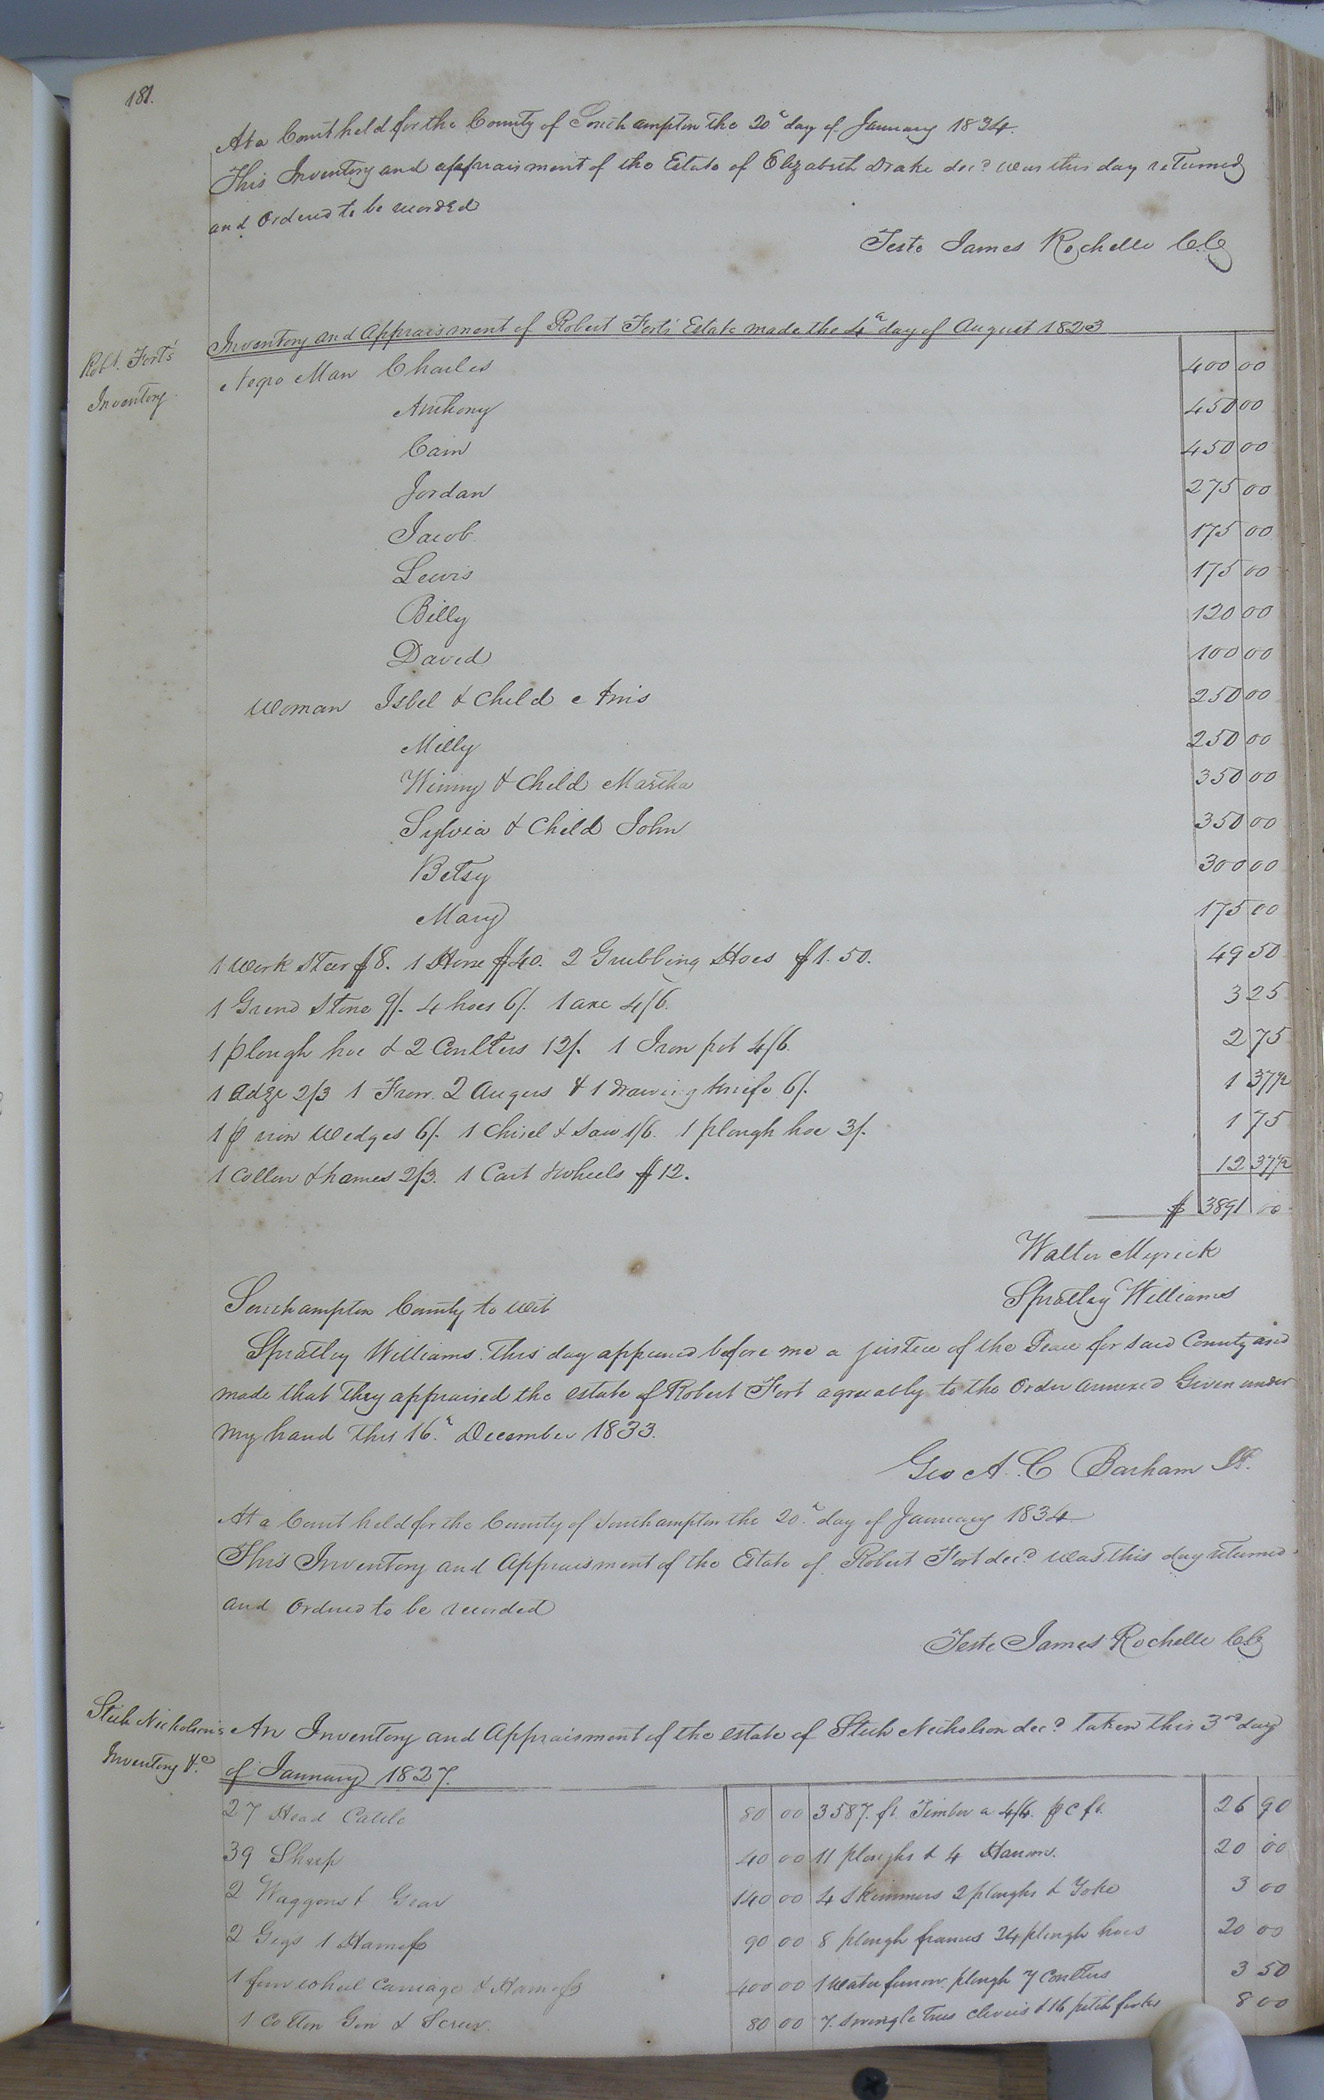 181.
At a Court held for the County of Southampton the 20th day of January 1834.
This Inventory and appraisment of the Estate of Elizabeth Drake decd was this day returned
and Ordered to be recorded
Teste James Rochelle C.C.
Robt. Fort's
Inventory
Inventory and Appraisment of Robert Fort's Estate made the 4th day of August 1823
Negro Man Charles 400 00
Anthony 450 00
Cain 450 00
Jordan 275 00
Jacob 175 00
Lewis 175 00
Billy 120 00
David 100 00
Woman Isbel & Child Anis 250 00
Milly 250 00
Winny & Child Martha 350 00
Sylvia & Child John 350 00
Betsy 300 00
Mary 175 00
1 Work Steer $8. 1 Horse $40. 2 Grubbing Hoes $1.50. 49 50
1 Grind Stone 9/. 4 hoes 6/. 1 axe 4/6. 3 25
1 plough hoe & 2 Coulters 12/. 1 Iron pot 4/6. 2 75
1 Adze 2/3 1 Frow. 2 Augers & 1 drawing knife 6/. 1 37½
1 p iron Wedges 6/. 1 Chisel & Saw 1/6. 1 plough hoe 3/. 1 75
1 Coller & hames 2/3. 1 Cart & wheels $12. 12 37½
$ 3891 00
Walter Myrick
Spratley Williams
Southampton County to wit
Spratley Williams. This day appeared before me a justice of the Peace for said County and
made that they appraised the estate of Robert Fort agreeably to the Order annexed Given under
my hand this 16th December 1833.
Geo A. C Barham
At a Court held for the County of Southampton the 20th day of January 1834
This Inventory and Appraisment of the Estate of Robert Fort decd was this day returned
and Ordered to be recorded
Teste James Rochelle C.C.
Steth Nicholson's
Inventory &c
An Inventory and Appraisment of the estate of Steth Nicholson decd taken this 3rd day
of January 1827.
27 Head Cattle 80 00 3587. ft. Timber a 4/4. p C ft. 26 90
39 Sheep 40 00 11 ploughs & 4 Harrows. 20 00
2 Waggons & Gear 140 00 4 Skimmers 2 ploughs & Yoke 3 00
2 Gigs 1 Harness 90 00 8 plough frames 24 plough hoes 20 00
1 four wheel Carriage & Harness 400 00 1 Water furrow plough 7 Coulters 3 50
1 Cotton Gin & Screw. 80 00 7. Swingle trees clevis & 16 pitch forks 8 00